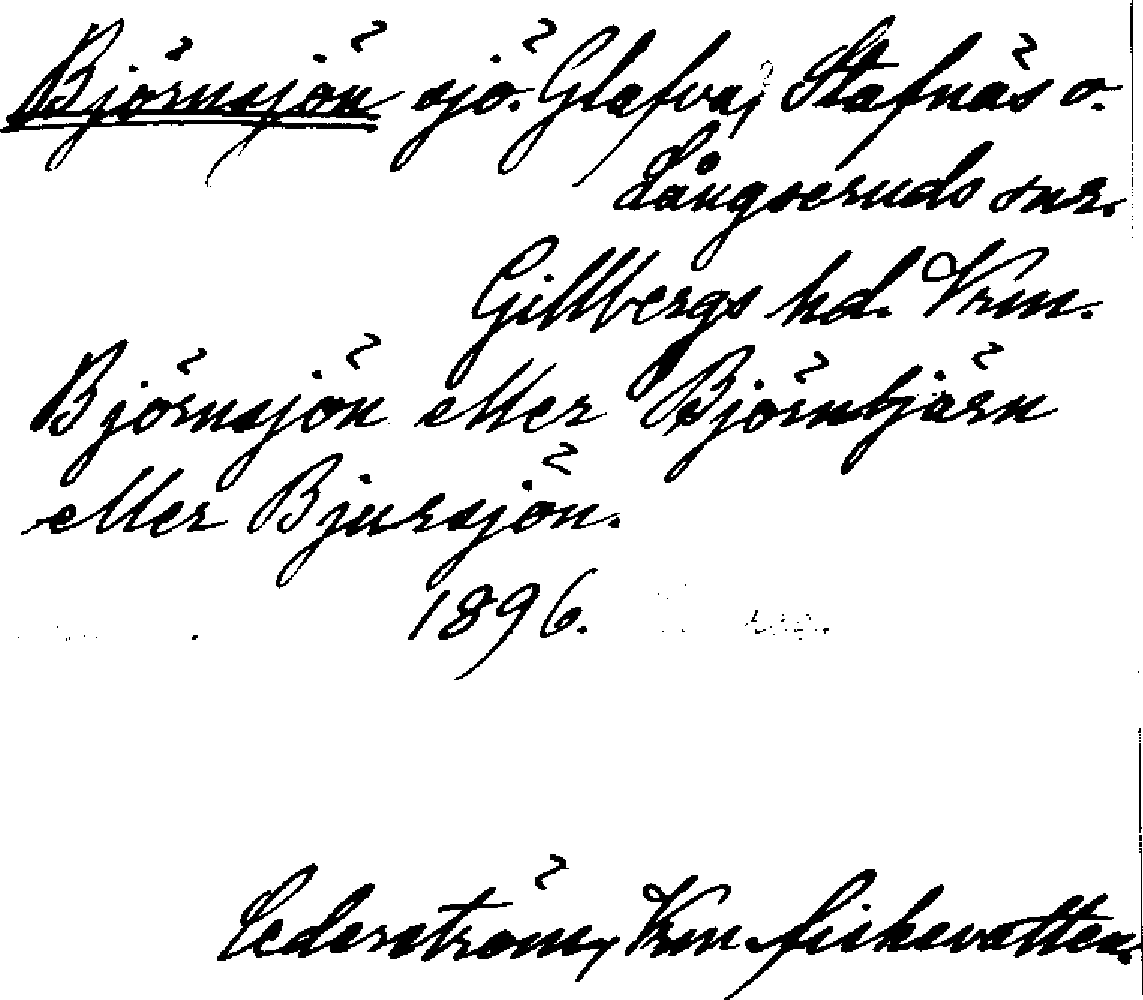 Björnsjön sjö. Glafva, Stafnäs o.
Långseruds snr.
Gillbergs hd. Vrm.
Björnsjön eller Björntjärn
eller Bjursjön.
1896.
Cederström, Vrm. fiskevatten.